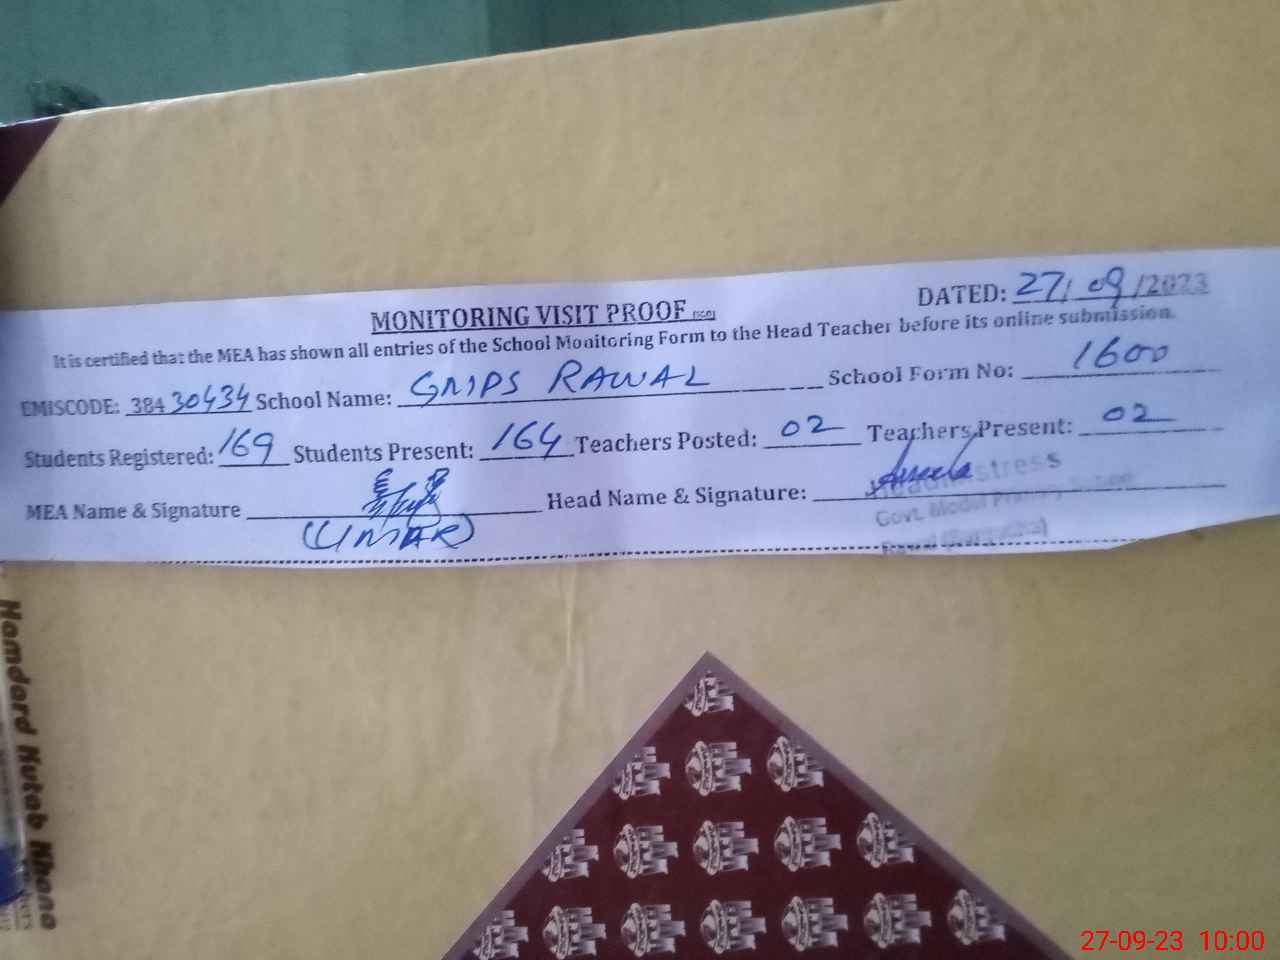 DATED: 27/09/2023
MONITORING VISIT PROOF
It is certified that the MEA has shown all entries of the School Monitoring Form to the Head Teacher before its online submission.
EMISCODE: 38430434 School Name: GMPS RAWAL School Form No: 1600
Students Registered: 169 Students Present: 164 Teachers Posted: 02 Teachers Present: 02
MEA Name & Signature Head Name & Signature:
(UMAR)
Headmistress
Govt. Model Primary School
Rawal
Hamdard Kutab Khana
27-09-23 10:00